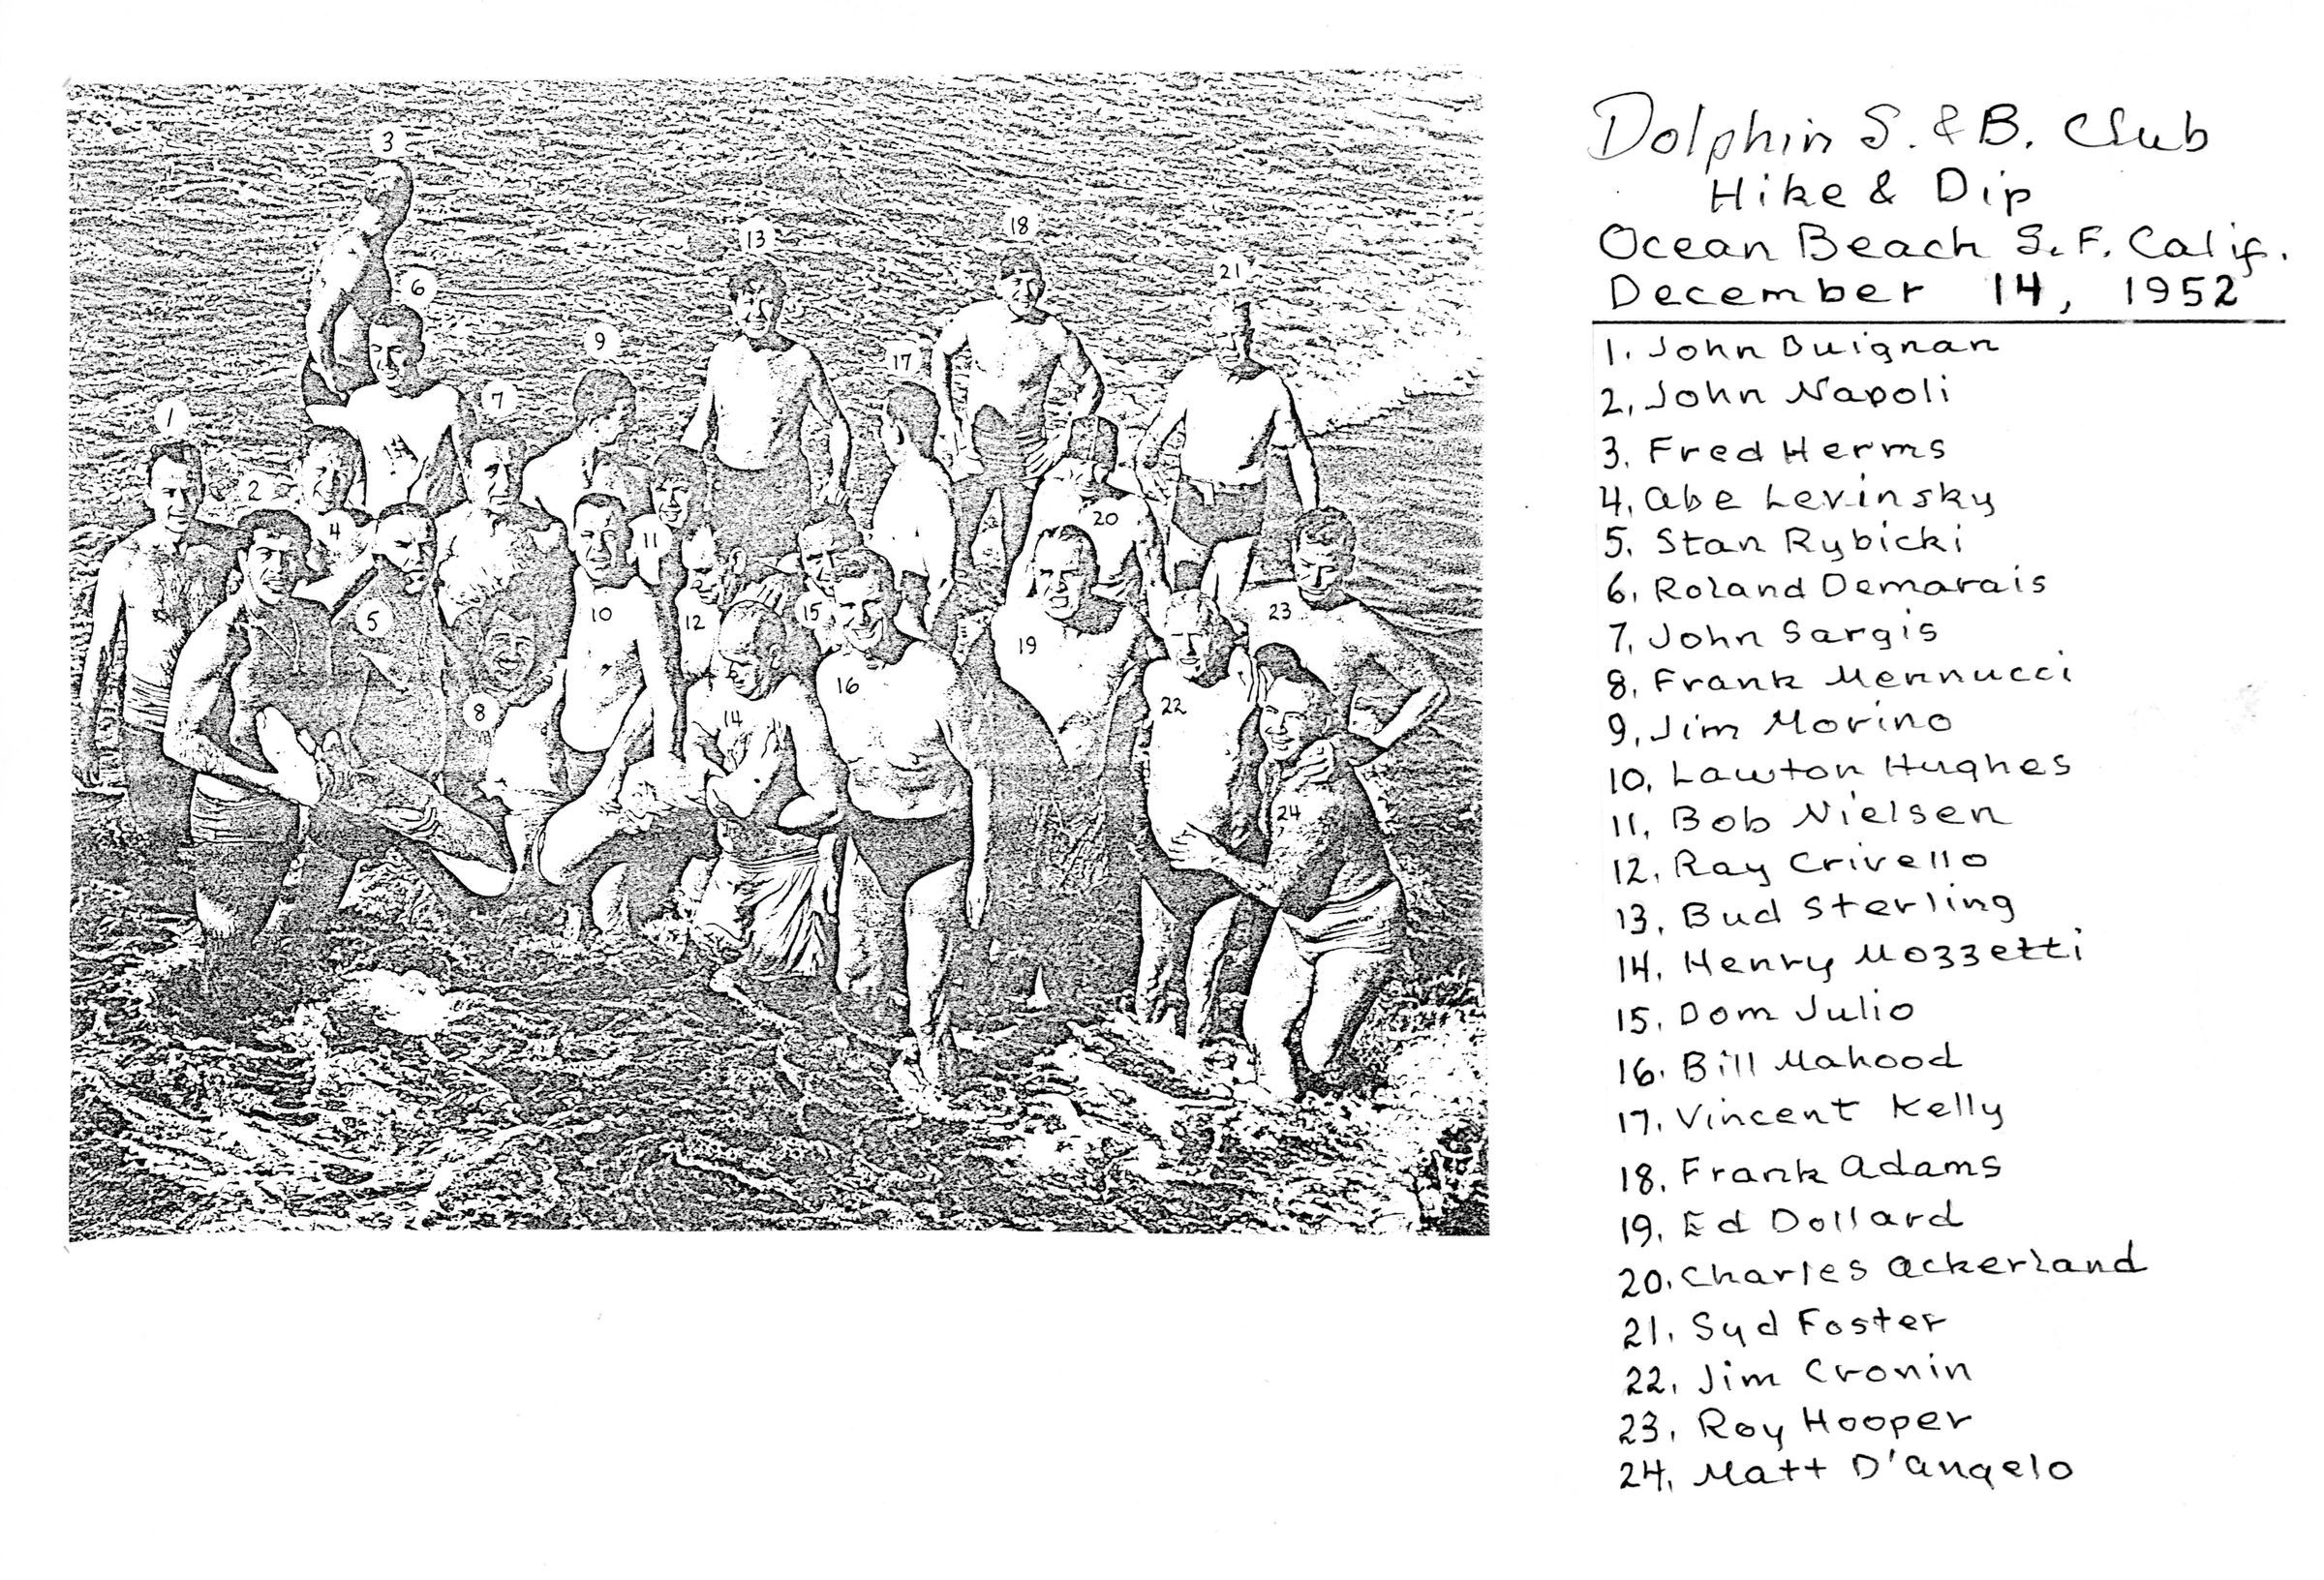 3
13
18
6
21
9
17
7
1
2
4
20
11
5
10
12
15
23
19
16
8
14
22
24
Dolphin S. & B. Club
Hike & Dip
Ocean Beach S.F. Calif.
December 14, 1952
1. John Duignan
2, John Napoli
3. Fred Herms
4. Abe Levinsky
5. Stan Rybicki
6, Roland Demarais
7, John Sargis
8, Frank Mennucci
9, Jim Morino
10, Lawton Hughes
11, Bob Nielsen
12, Ray Crivello
13, Bud Sterling
14, Henry Mozzetti
15, Dom Julio
16. Bill Mahood
17, Vincent Kelly
18, Frank Adams
19, Ed Dollard
20, Charles Ackerland
21, Syd Foster
22, Jim Cronin
23, Roy Hooper
24, Matt D'Angelo